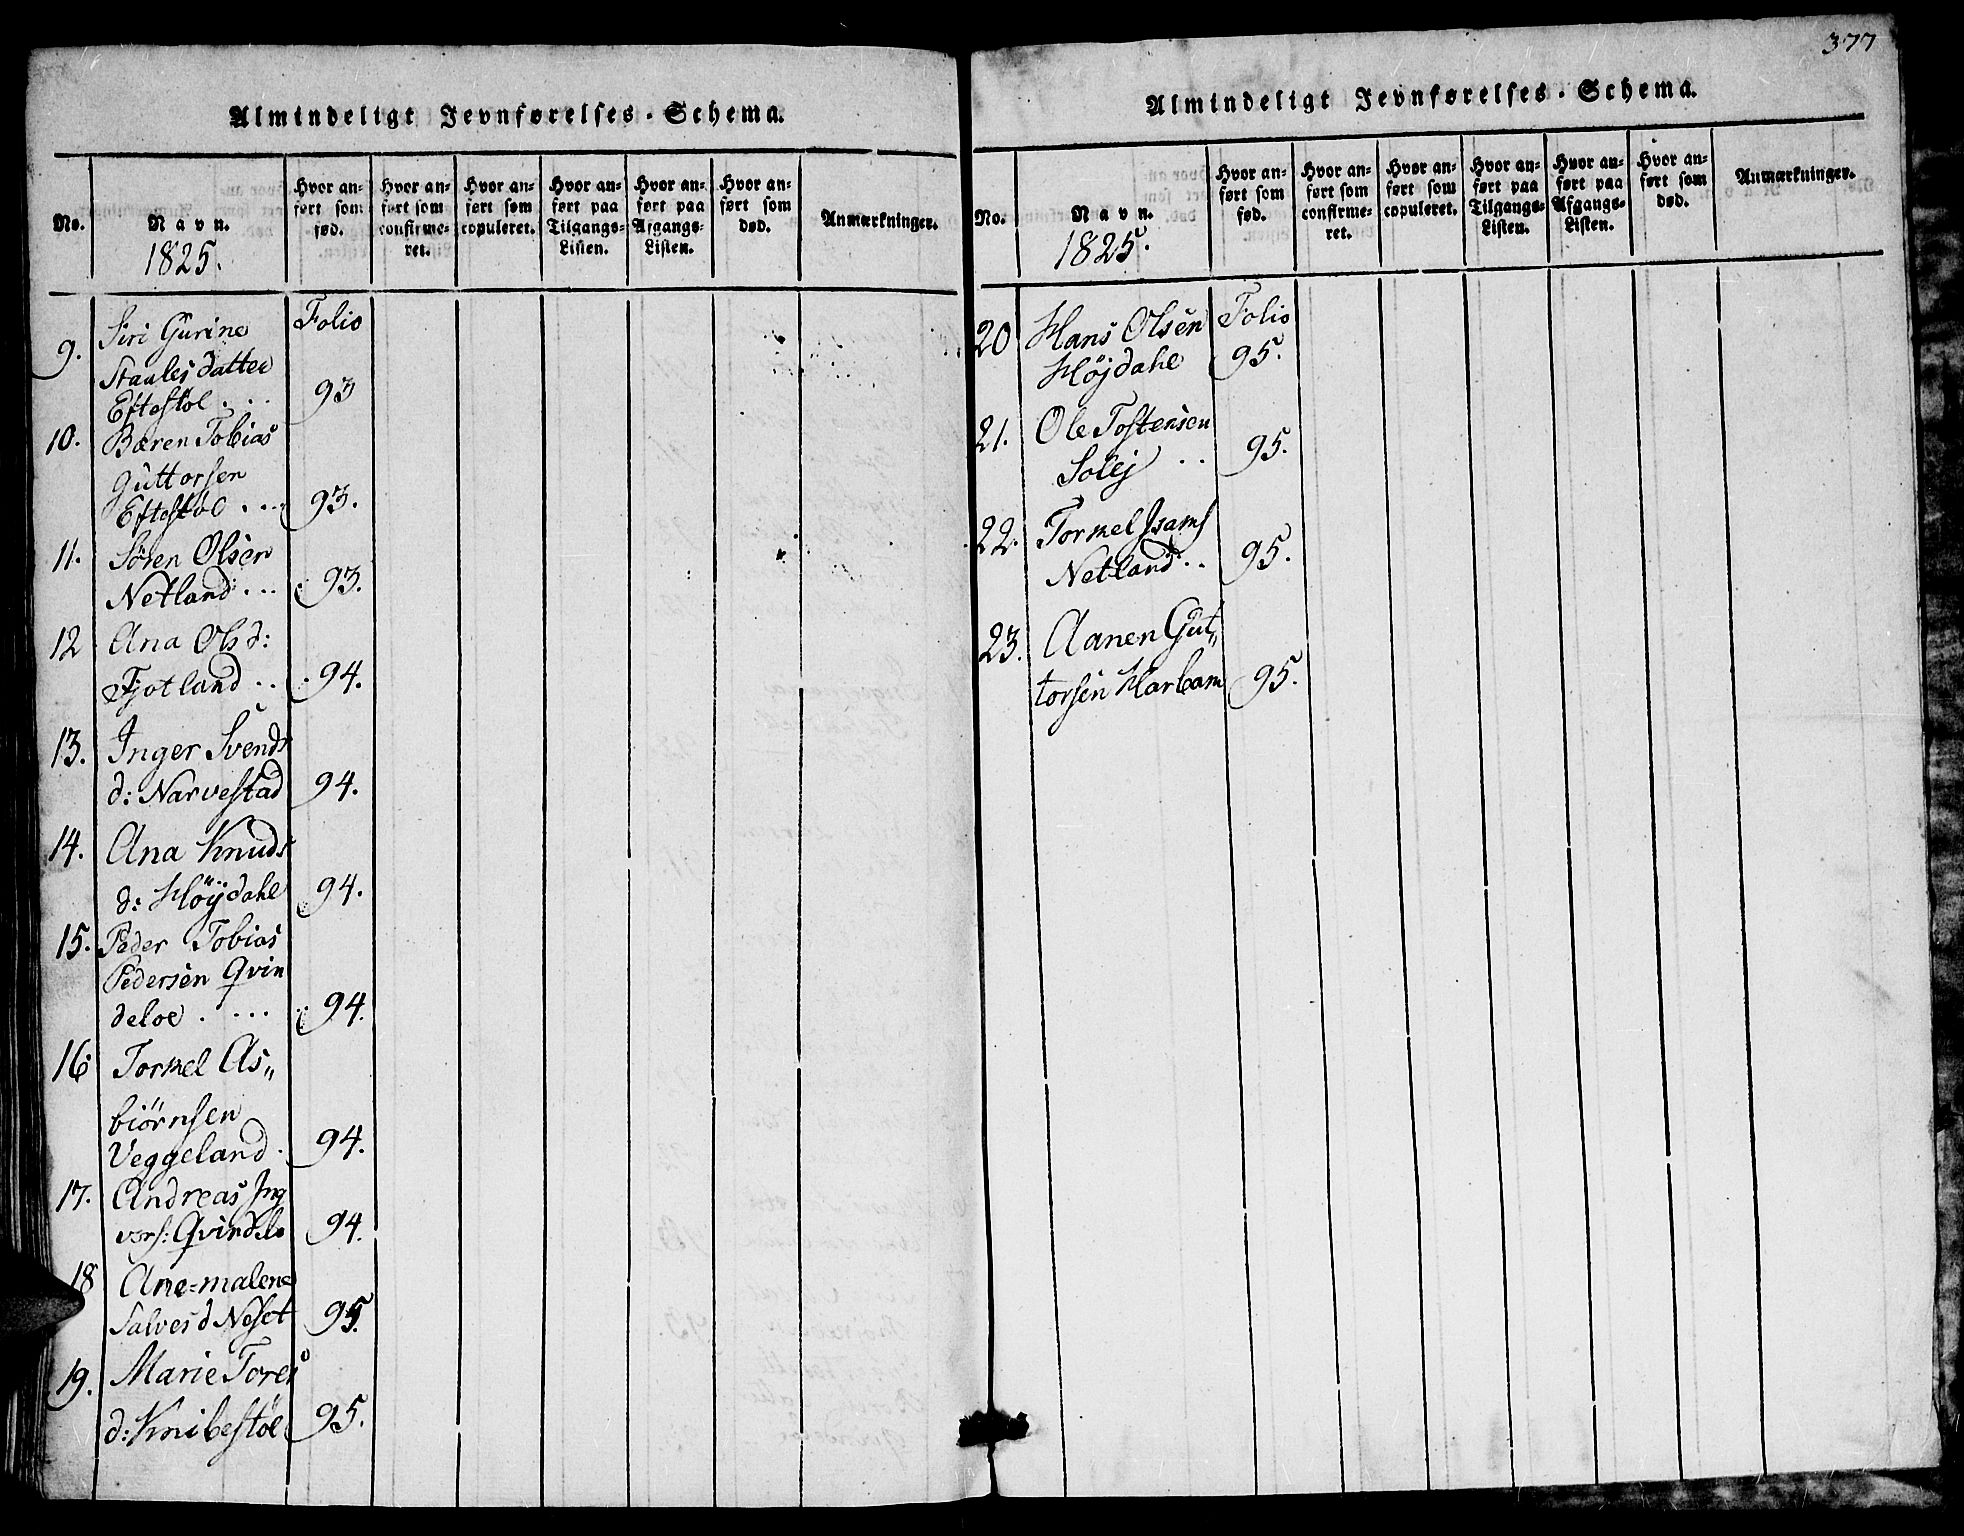 377
Almindeligt Jevnførelses-Schema.
No. Navn. Hvor anført som fød. Hvor anført som confirmeret. Hvor anført som copuleret. Hvor anført paa Tilgangs-Listen. Hvor anført paa Afgangs-Listen. Hvor anført som død. Anmærkninger.
1825.
9. Siri Gurine Folio
Staalesdatter
Eftestøl . . . 93
10. Bæren Tobias
Guttorsen
Eftestøl . . . 93.
11. Sören Olsen
Netland . . . 93.
12 Ana Olsd:
Fjotland . . . 94.
13. Inger Svends
d: Narvestad 94.
14. Ana Knuds
d: Höÿdahl 94.
15. Peder Tobias
Pedersen Qvin
deloe . . . . 94.
16. Torkel As„
biörnsen
Veggeland . 94.
17. Andreas Ing
vors: Qvindslo 94.
18 Ane=malene
Salvesd Neset 95.
19. Marie Tores
d: Knibestöl 95.
Almindeligt Jevnførelses-Schema.
No. Navn. Hvor anført som fød. Hvor anført som confirmeret. Hvor anført som copuleret. Hvor anført paa Tilgangs-Listen. Hvor anført paa Afgangs-Listen. Hvor anført som død. Anmærkninger.
1825.
20 Hans Olsen Folio
Höjdahl 95.
21. Ole Tostensen
Solej . . 95.
22. Torkel Isams
Netland . . 95.
23. Aanen Gut„
torsen Harbam 95.